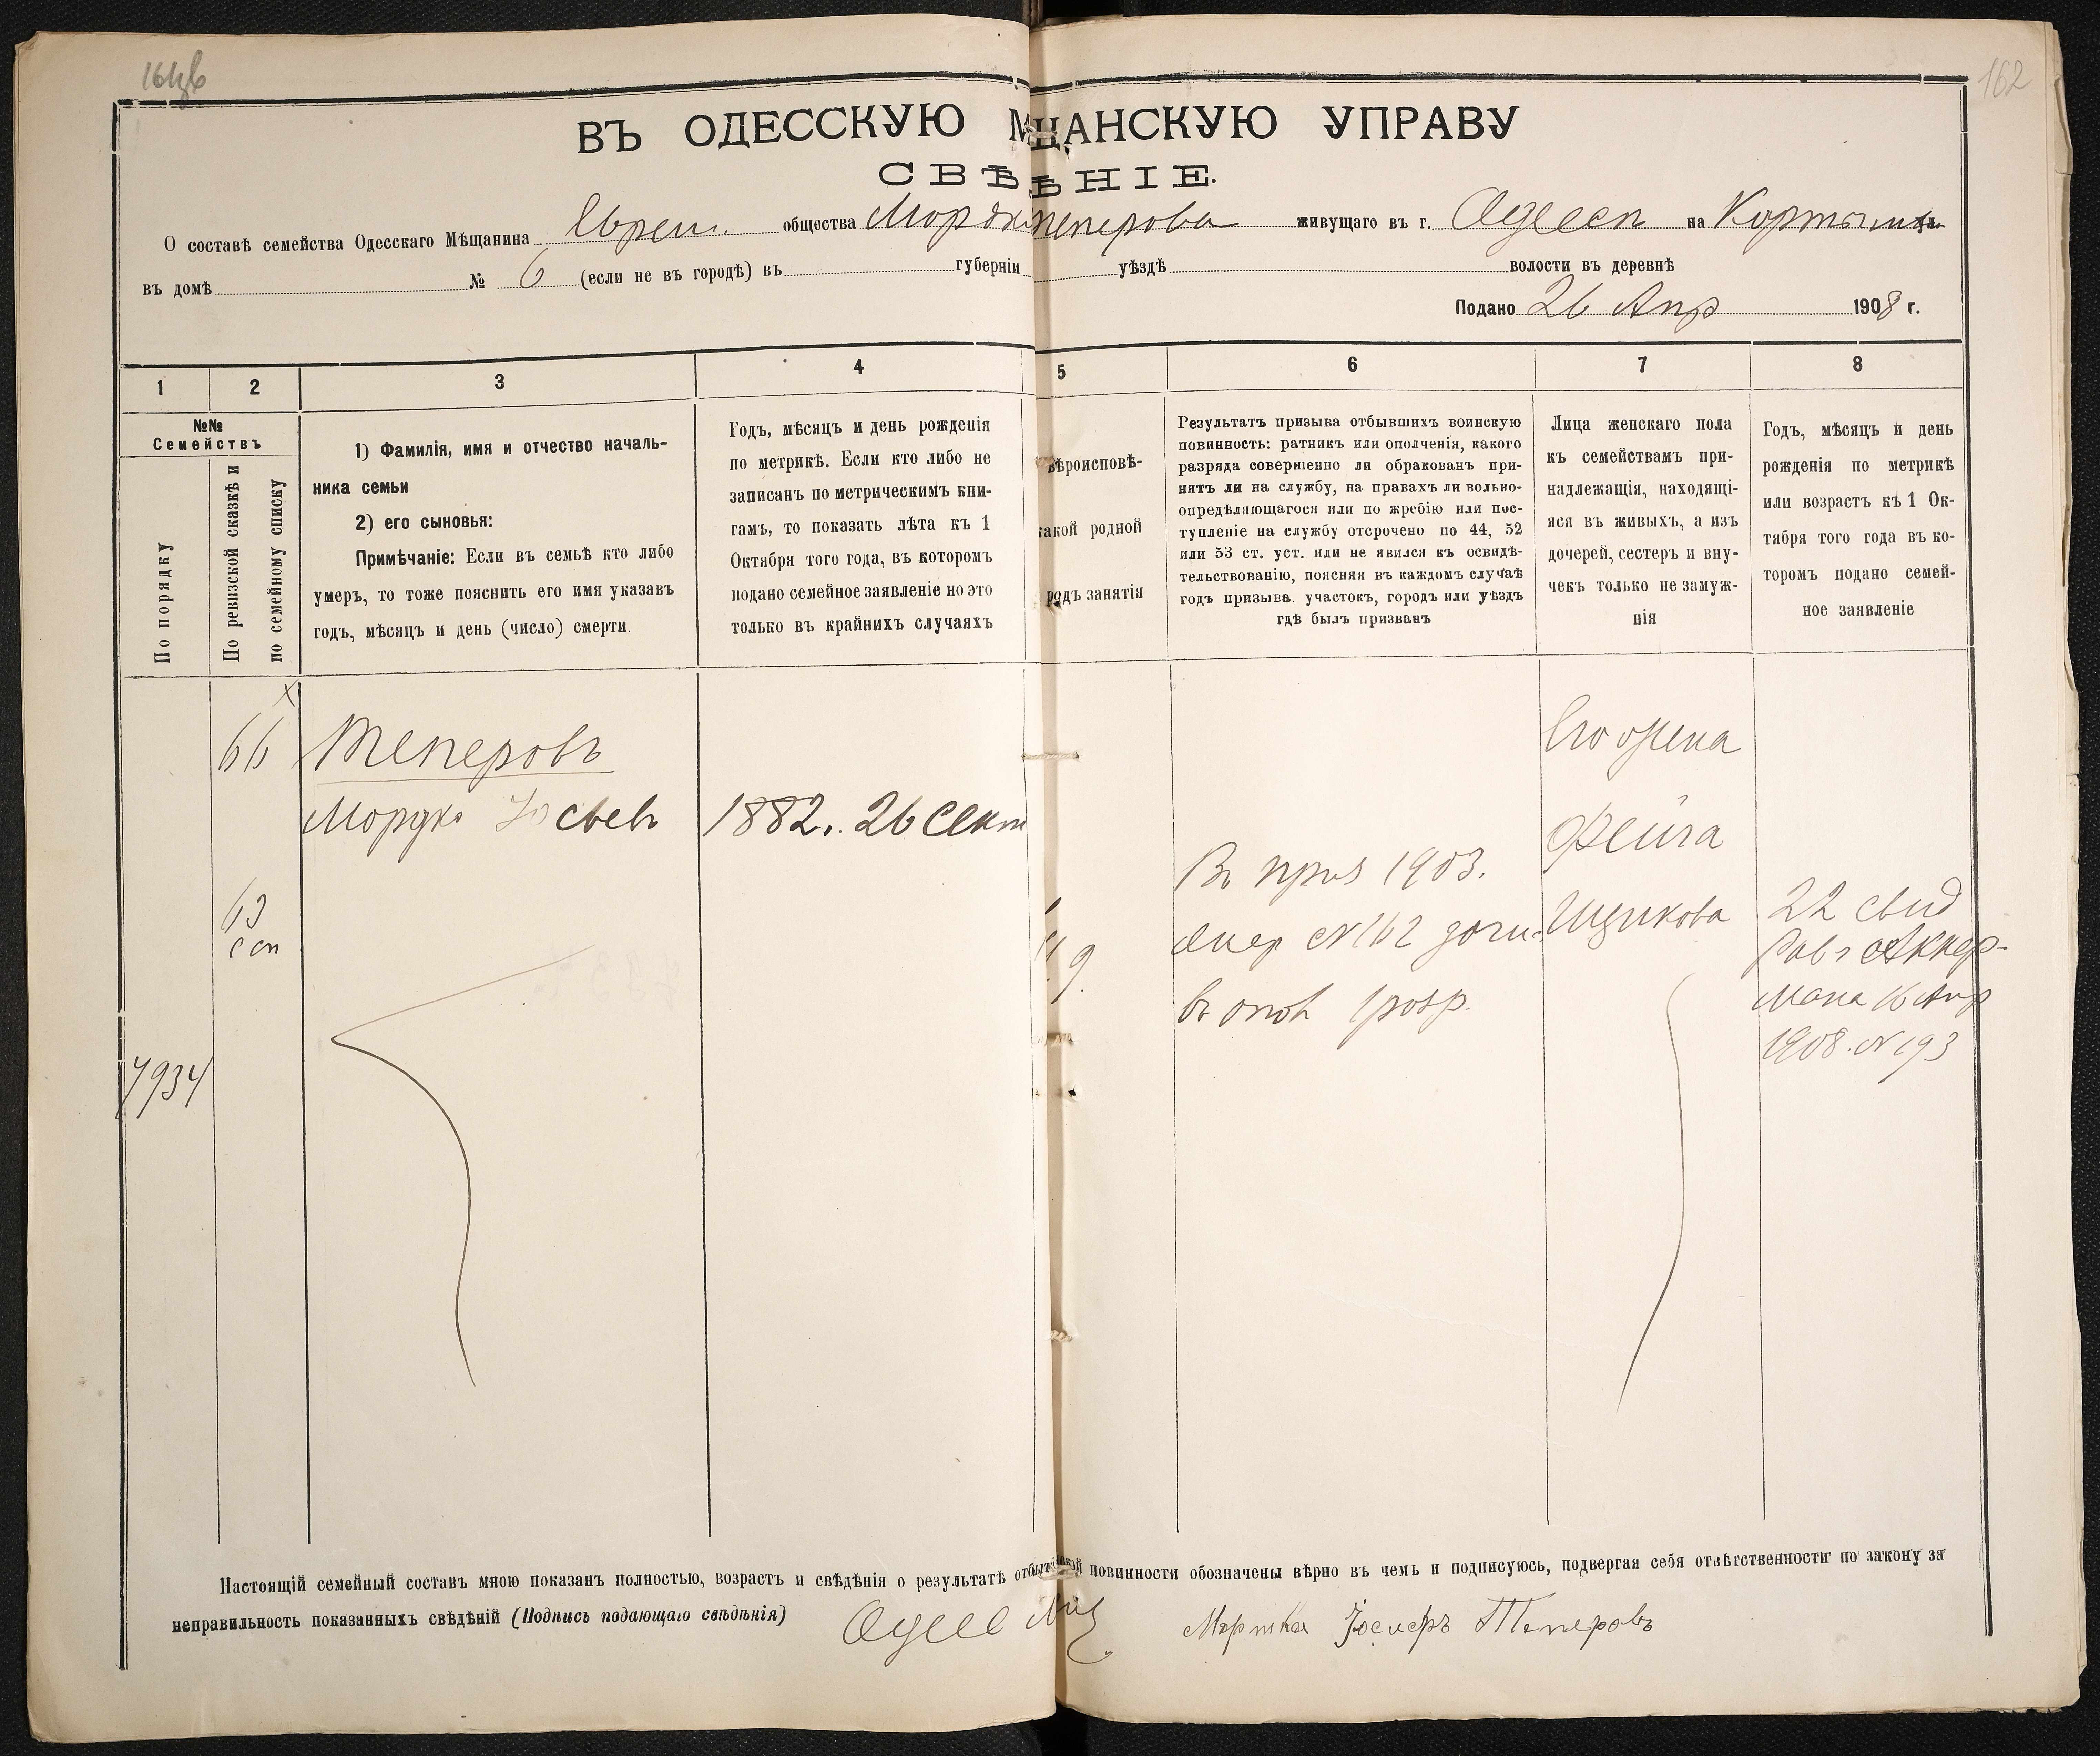 162
ВЪ ОДЕССКУЮ МЩАНСКУЮ УПРАВУ
СВѢѢНІЕ.
О составѣ семейства Одесскаго Мѣщанина Евреи. общества Мордк Теперова живущаго въ г. Одессѣ на
въ домѣ № 6 (если не въ городѣ) въ губерніи уѣздѣ волости въ деревнѣ
Подано 26 Апр 1908 г.
1 2 3 4 5 6 7 8
№№
Семействъ
По порядку
По ревизской сказкѣ и
по семейному списку
1) Фамилія, имя и отчество началь-
ника семьи
2) его сыновья:
Примѣчаніе: Если въ семьѣ кто либо
умеръ, то тоже пояснить его имя указавъ
годъ, мѣсяцъ и день (число) смерти.
Годъ, мѣсяцъ и день рожденія
по метрикѣ. Если кто либо не
записанъ по метрическимъ кни-
гамъ, то показать лѣта къ 1
Октября того года, въ которомъ
подано семейное заявленіе но это
только въ крайнихъ случаяхъ
вѣроисповѣ-
какой родной
родъ занятія
Результатъ призыва отбывшихъ воинскую
повинность: ратникъ или ополченія, какого
разряда совершенно ли обракованъ при-
нятъ ли на службу, на правахъ ли вольно-
опредѣляющагося или по жребію или пос-
тупленіе на службу отсрочено по 44, 52
или 53 ст. уст. или не явился къ освидѣ-
тельствованію, поясняя въ каждомъ случаѣ
годъ призыва. участокъ, городъ или уѣздъ
гдѣ былъ призванъ
Лица женскаго пола
къ семействамъ при-
надлежащія, находящі-
яся въ живыхъ, а изъ
дочерей, сестеръ и вну-
чекъ только не замуж-
нія
Годъ, мѣсяцъ и день
рожденія по метрикѣ
или возрастъ къ 1 Ок-
тября того года въ ко-
торомъ подано семей-
ное заявленіе
66
Теперовъ
Мордко Іосьевъ
1882. 26 Сент
63
7934
Въ приз 1903.
№ 162
въ опол 1 разр.
Его жена
Фейга
Ицикова
22 свид
Рав. Аккер-
мана 16 Апр
1908. № 193
Настоящій семейный составъ мною показанъ полностью, возрастъ и свѣдѣнія о результатѣ отбыт повинности обозначены вѣрно въ чемъ и подписуюсь, подвергая себя отвѣтственности по закону за
неправильность показанныхъ свѣдѣній (Подпись подающаго свѣдѣнія) Одесс Теперовъ